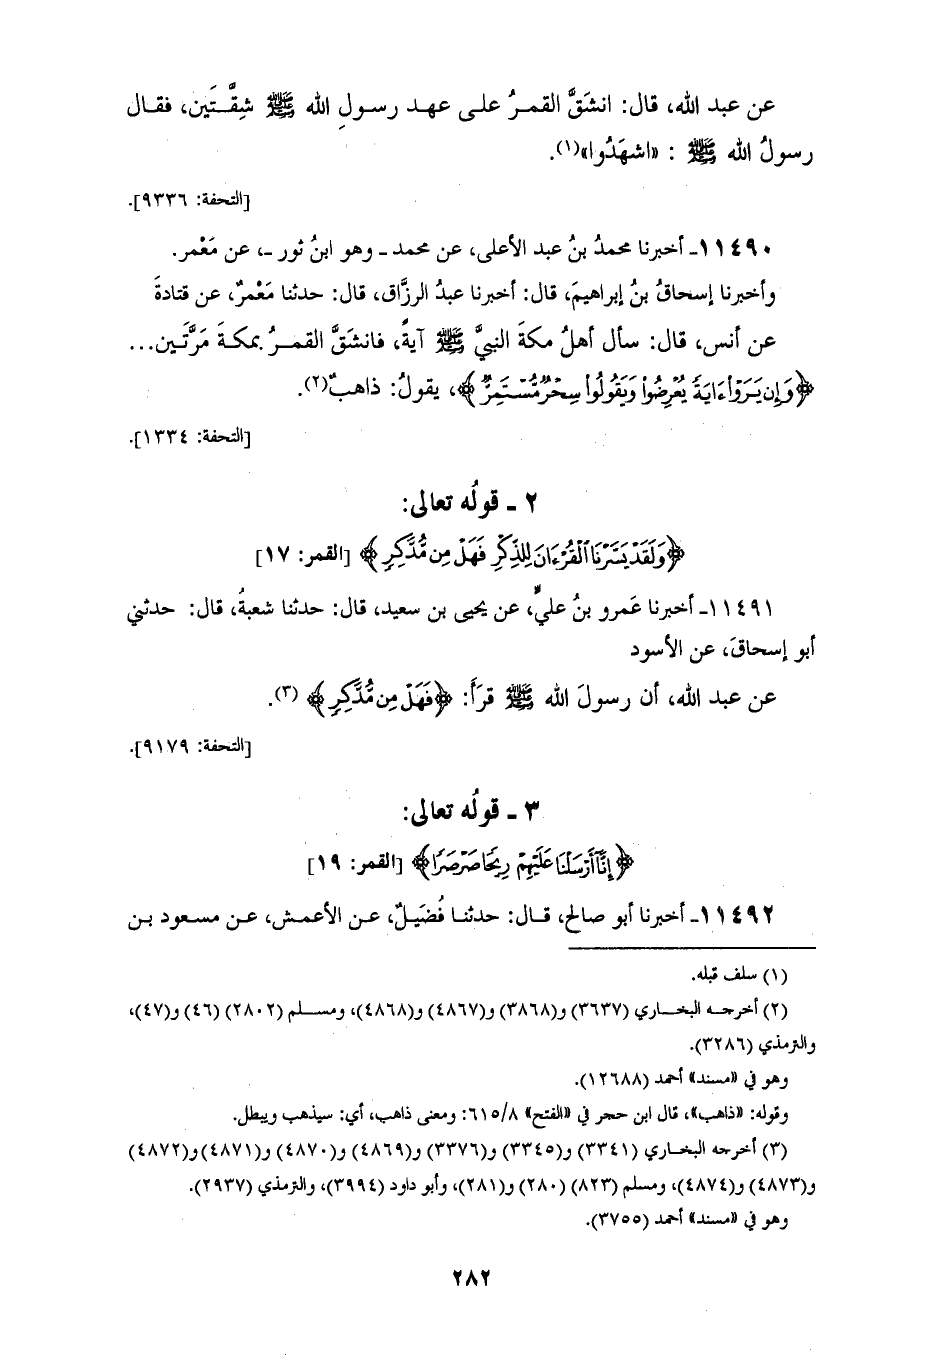 عن عبد الله، قال: انشَقَّ القمرُ على عهد رسولِ الله ﷺ شِقَّتَين، فقال
رسولُ الله ﷺ : «اشهَدُوا»(١).
[التحفة: ٩٣٣٦].
١١٤٩٠ـ أخبرنا محمدُ بنُ عبد الأعلى، عن محمد ـ وهو ابنُ ثور ـ، عن مَعْمر.
وأخبرنا إسحاقُ بنُ إبراهيمَ، قال: أخبرنا عبدُ الرزَّاق، قال: حدثنا مَعْمرٌ، عن قتادةَ
عن أنس، قال: سأل أهلُ مكةَ النبيَّ ﷺ آيةً، فانشَقَّ القمرُ بمكةَ مَرَّتَين...
﴿وَإِن يَرَوْا۟ ءَايَةً يُعْرِضُوا۟ وَيَقُولُوا۟ سِحْرٌ مُّسْتَمِرٌّ﴾، يقولُ: ذاهبٌ(٢).
[التحفة: ١٣٣٤].
٢ ـ قولُه تعالى:
﴿وَلَقَدْ يَسَّرْنَا ٱلْقُرْءَانَ لِلذِّكْرِ فَهَلْ مِن مُّدَّكِرٍ﴾ [القمر: ١٧]
١١٤٩١ـ أخبرنا عَمرو بنُ عليٍّ، عن يحيى بن سعيد، قال: حدثنا شعبةُ، قال: حدثني
أبو إسحاقَ، عن الأسود
عن عبد الله، أن رسولَ الله ﷺ قرَأَ: ﴿فَهَلْ مِن مُّدَّكِرٍ﴾ (٣).
[التحفة: ٩١٧٩].
٣ ـ قولُه تعالى:
﴿إِنَّآ أَرْسَلْنَا عَلَيْهِمْ رِيحًا صَرْصَرًا﴾ [القمر: ١٩]
١١٤٩٢ـ أخبرنا أبو صالح، قال: حدثنا فُضَيلٌ، عن الأعمش، عن مسعود بن
(١) سلف قبله.
(٢) أخرجه البخاري (٣٦٣٧) و(٣٨٦٨) و(٤٨٦٧) و(٤٨٦٨)، ومسلم (٢٨٠٢) (٤٦) و(٤٧)،
والترمذي (٣٢٨٦).
وهو في «مسند» أحمد (١٢٦٨٨).
وقوله: «ذاهب»، قال ابن حجر في «الفتح» ٦١٥/٨: ومعنى ذاهب، أي: سيذهب ويبطل.
(٣) أخرجه البخاري (٣٣٤١) و(٣٣٤٥) و(٣٣٧٦) و(٤٨٦٩) و(٤٨٧٠) و(٤٨٧١) و(٤٨٧٢)
و(٤٨٧٣) و(٤٨٧٤)، ومسلم (٨٢٣) (٢٨٠) و(٢٨١)، وأبو داود (٣٩٩٤)، والترمذي (٢٩٣٧).
وهو في «مسند» أحمد (٣٧٥٥).
٢٨٢